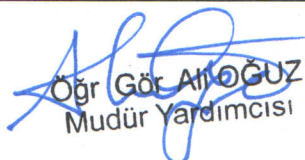 Öğr Gör Ali OĞUZ
Mudür Yardımcısı